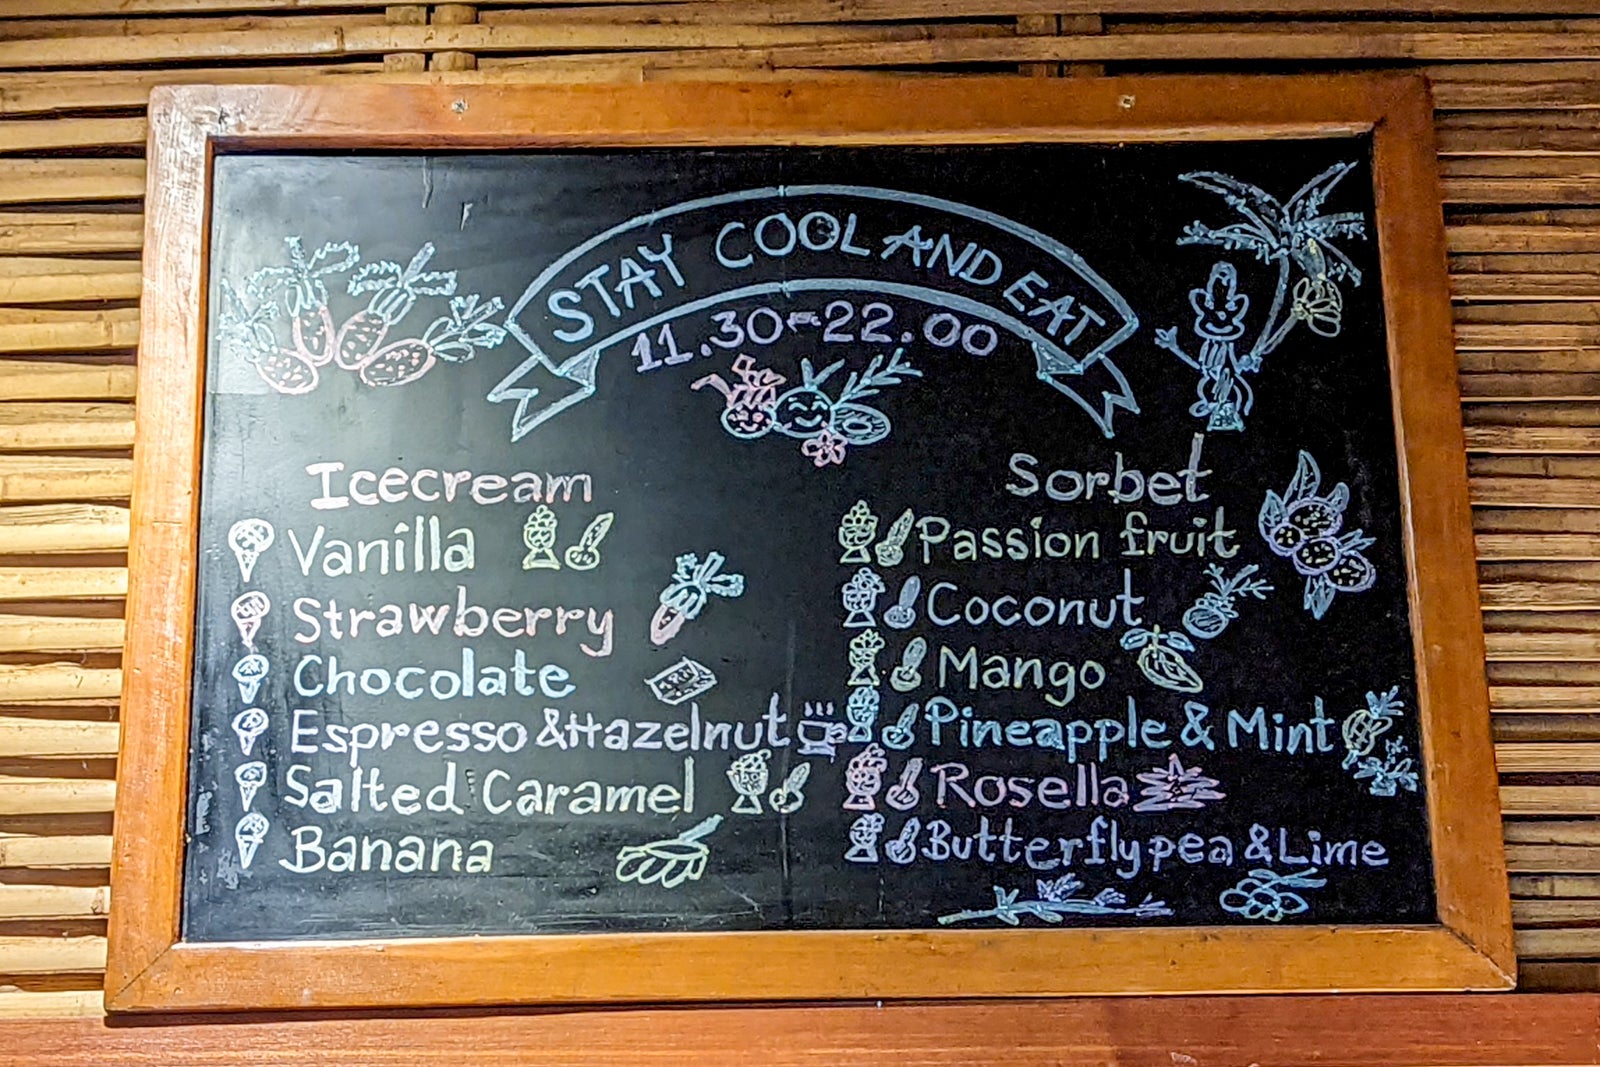 STAY COOL AND EAT
11.30-22.00
Icecream
Vanilla
Strawberry
Chocolate
Espresso & Hazelnut
Salted Caramel
Banana
Sorbet
Passion fruit
Coconut
Mango
Pineapple & Mint
Rosella
Butterfly pea & Lime